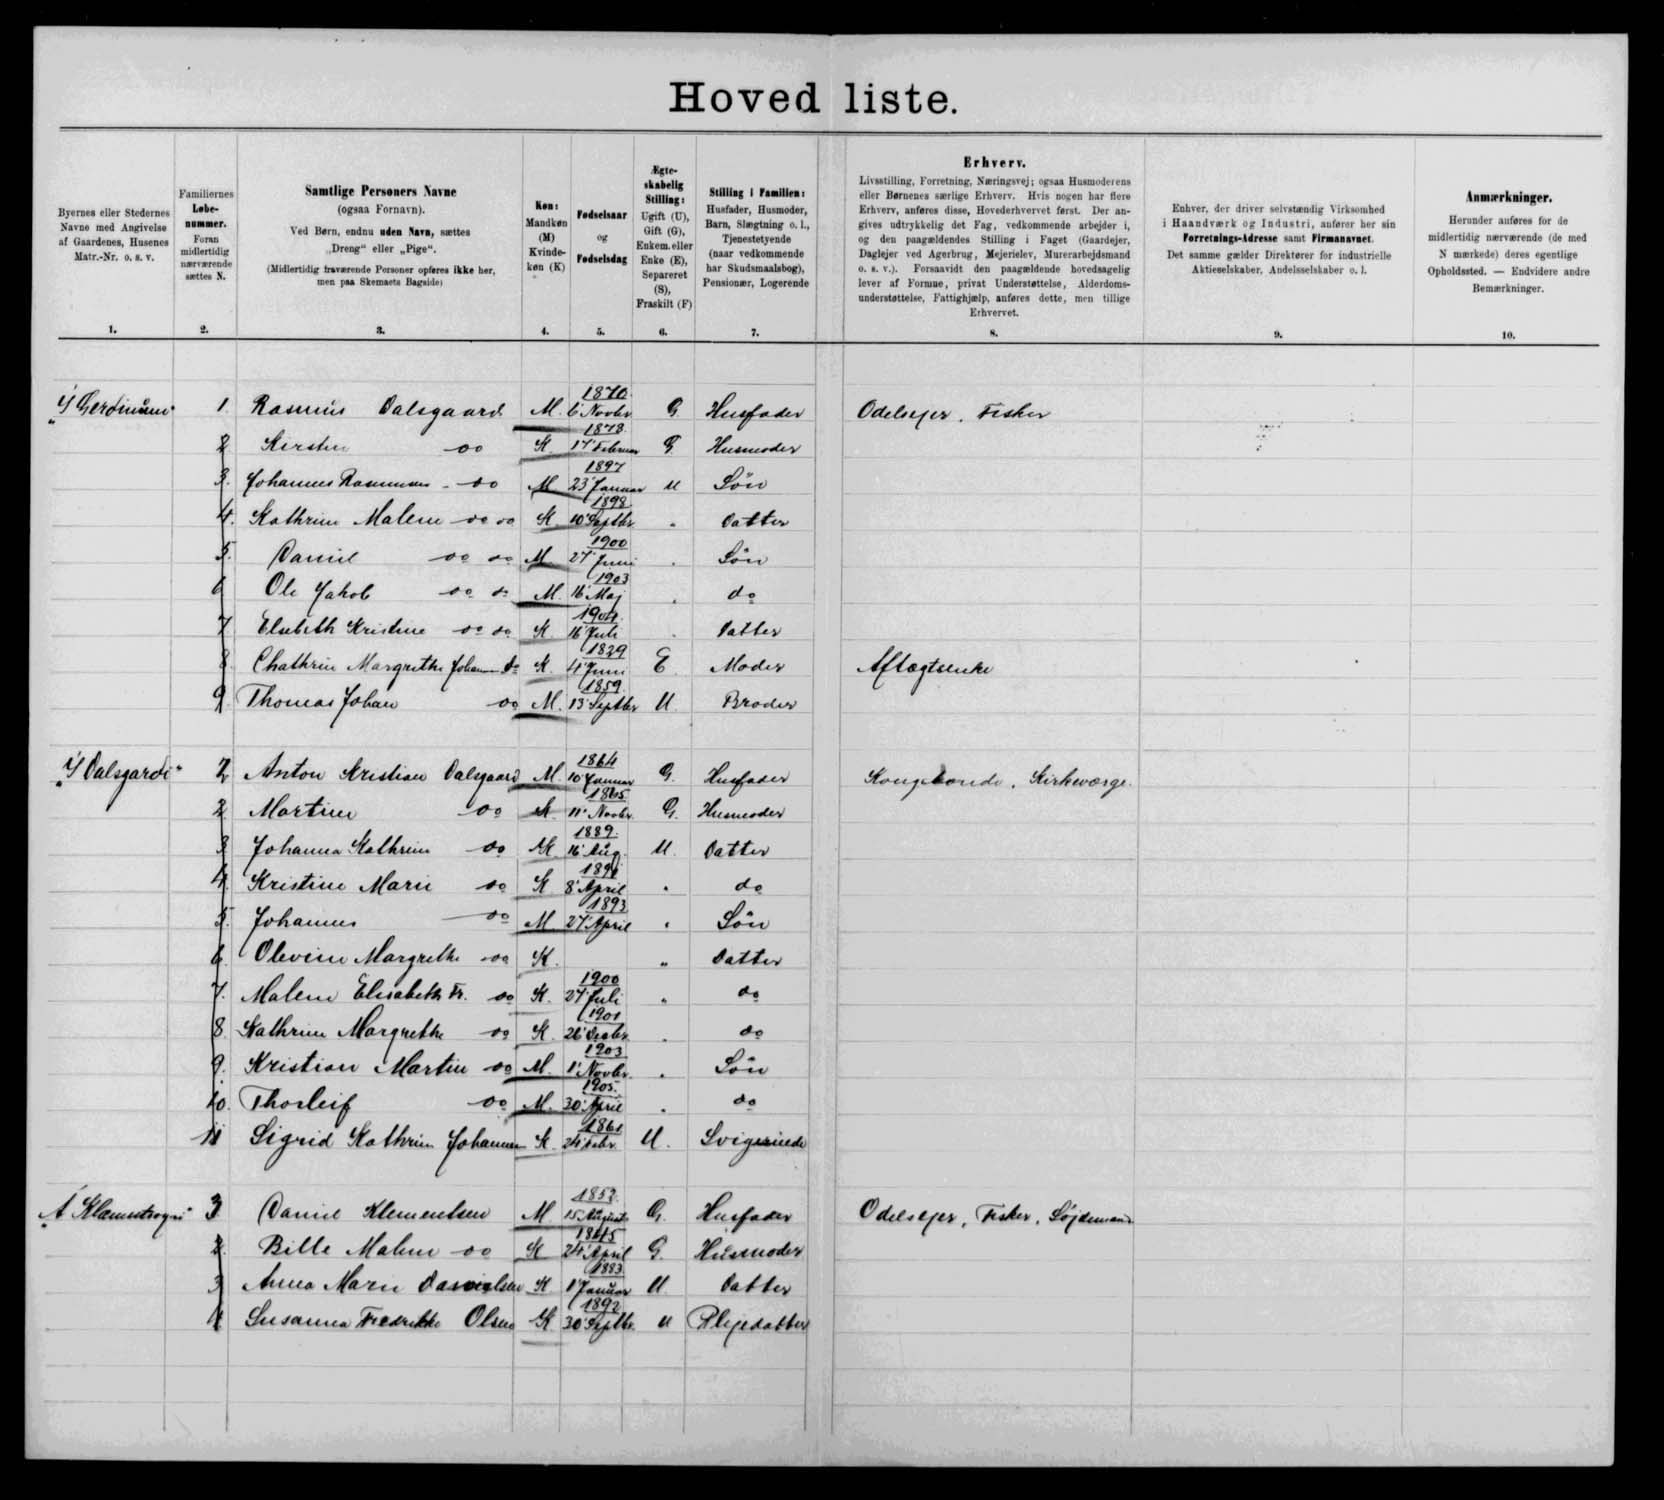 Hoved liste.
Byernes eller Stedernes
Navne med Angivelse
af Gaardenes, Husenes
Matr.-Nr. o. s. v.
1.
Familiernes
Løbe-
nummer.
Foran
midlertidig
nærværende
sættes N.
2.
Samtlige Personers Navne
(ogsaa Fornavn).
Ved Børn, endnu uden Navn, sættes
„Dreng“ eller „Pige“.
(Midlertidig fraværende Personer opføres ikke her,
men paa Skemaets Bagside)
3.
Køn:
Mandkøn
(M)
Kvinde-
køn (K)
4.
Fødselsaar
og
Fødselsdag
5.
Ægte-
skabelig
Stilling:
Ugift (U),
Gift (G),
Enkem. eller
Enke (E),
Separeret
(S),
Fraskilt (F)
6.
Stilling i Familien:
Husfader, Husmoder,
Barn, Slægtning o. l.,
Tjenestetyende
(naar vedkommende
har Skudsmaalsbog),
Pensionær, Logerende
7.
Erhverv.
Livsstilling, Forretning, Næringsvej; ogsaa Husmoderens
eller Børnenes særlige Erhverv. Hvis nogen har flere
Erhverv, anføres disse, Hovederhvervet først. Der an-
gives udtrykkelig det Fag, vedkommende arbejder i,
og den paagældendes Stilling i Faget (Gaardejer,
Daglejer ved Agerbrug, Mejerielev, Murerarbejdsmand
o. s. v.). Forsaavidt den paagældende hovedsagelig
lever af Formue, privat Understøttelse, Alderdoms-
understøttelse, Fattighjælp, anføres dette, men tillige
Erhvervet.
8.
Enhver, der driver selvstændig Virksomhed
i Haandværk og Industri, anfører her sin
Forretnings-Adresse samt Firmanavnet.
Det samme gælder Direktører for industrielle
Aktieselskaber, Andelsselskaber o. l.
9.
Anmærkninger.
Herunder anføres for de
midlertidig nærværende (de med
N mærkede) deres egentlige
Opholdssted. — Endvidere andre
Bemærkninger.
10.
1 Rasmus Dalsgaard M. 1870 6' Novbr. G. Husfader Odelsejer. Fisker
2 Kirstine do K. 1878 17' Februar G. Husmoder
3. Johannes Rasmussen do M 1897 23' Januar U Søn
4. Kathrine Malene do do K. 1898 10' Septbr. " Datter
5. Daniel do do M 1900 27' Juni " Søn
6 Ole Jakob do do M. 1903 16' Maj " do
7 Elsebeth Kristine do do K 1904 16' Juli " Datter
8. Chathrine Margrethe Johanne do K. 1829 4' Juni E. Moder Aftægtsenke
9. Thomas Johan do M. 1859 13' Septbr U. Broder
"Í Dalsgardi" 2 Anton Kristian Dalsgaard M. 1864 10' Januar G. Husfader Kongsbonde. Kirkeværge.
2. Martine do K. 1865 11' Novbr. G. Husmoder
3 Johanna Kathrine do K 1889 16' Aug. U. Datter
4. Kristine Marie do K 1891 8' April " do
5. Johannes do M. 1893 27' April " Søn
6. Olevine Margrethe do K. " Datter
7. Malene Elisabeth Fr. do K. 1900 27' Juli " do
8. Kathrine Margrethe do K. 1901 26' Decbr. " do
9. Kristian Martin do M. 1903 1' Novbr. " Søn
10. Thorleif do M. 1905 30' April " do
11 Sigrid Kathrine Johannesen K. 1861 24' Febr. U. Svigerinde
3. Daniel Klementsen M. 1852 15 August G. Husfader Odelsejer, Fisker, Søjdemand
2. Bille Malene do K 1845 24' April G. Husmoder
3 Anna Marie Danielsen K. 1883 1' Januar U Datter
4. Susanna Fredrikke Olsen K. 1892 30' Septbr. U Plejedatter